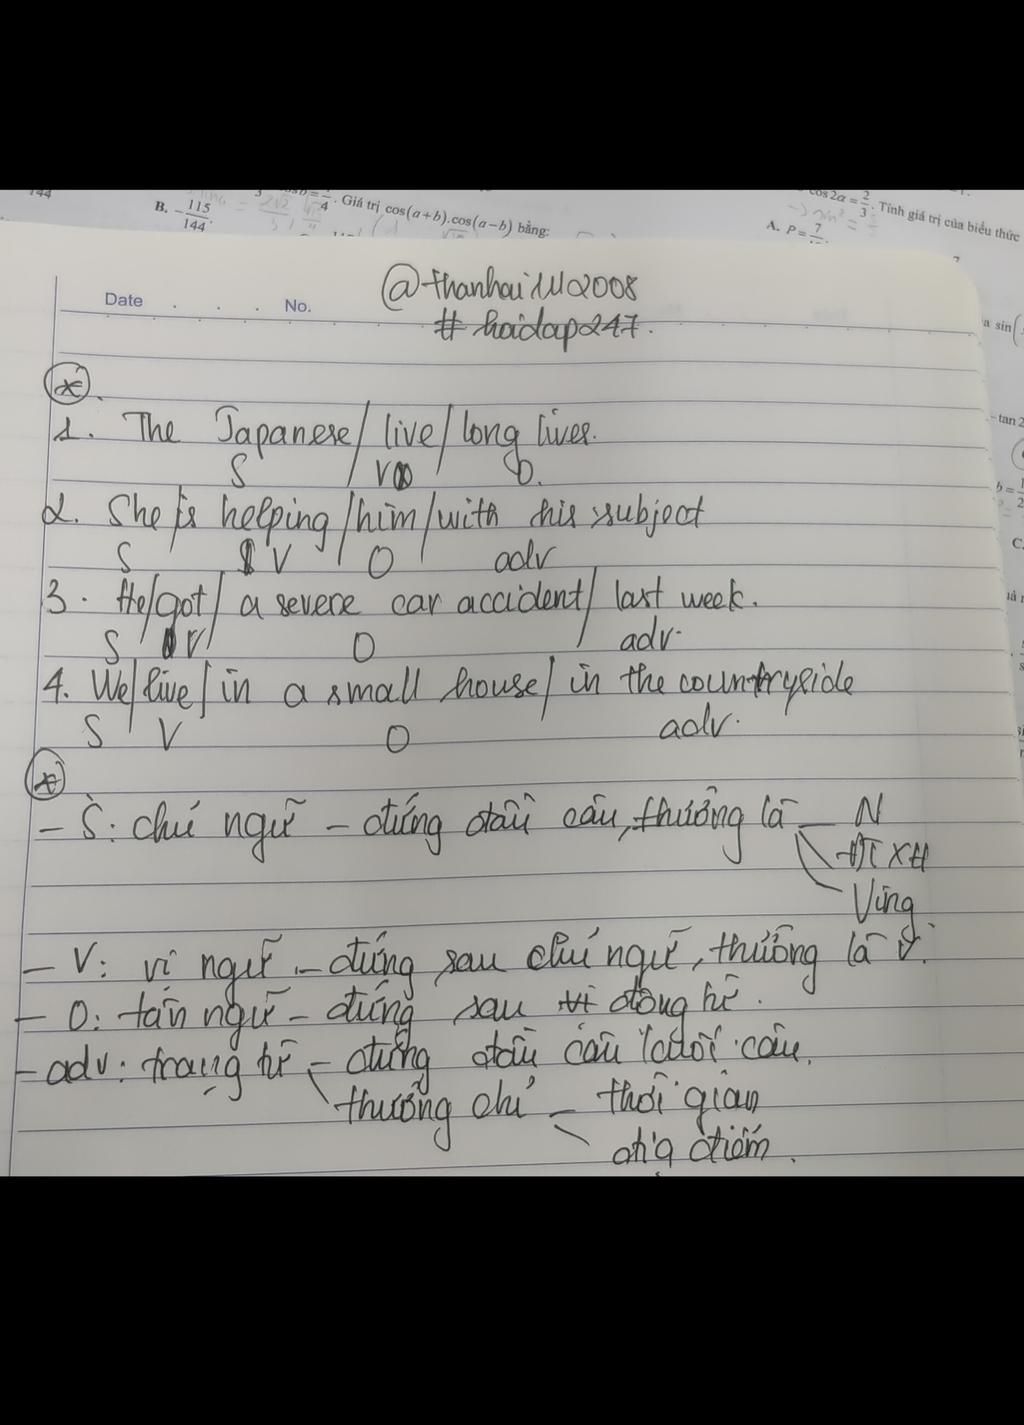 144
B. -115/144.
b = 1/4. Giá trị cos(a+b).cos(a−b) bằng:
cos2a = 2/3. Tính giá trị của biểu thức
A. P = 7
a sin(
- tan 2
b = 1
C.
Date . . . No.
@thanhai1112008
#hoidap247.
*.
1. The Japanese/ live/ long lives.
S V O.
2. She/is helping/him/with his subject
S V O adv
3. He/got/ a severe car accident/ last week.
S V O adv.
4. We/live/ in a small house/ in the countryside
S V O adv.
*
- S: chủ ngữ - đứng đầu câu, thường là - N
ĐTXH
Ving
- V: vị ngữ - đứng sau chủ ngữ, thường là V.
- O: tân ngữ - đứng sau động từ.
- adv: trạng từ - đứng đầu câu / cuối câu.
thường chỉ - thời gian
địa điểm.